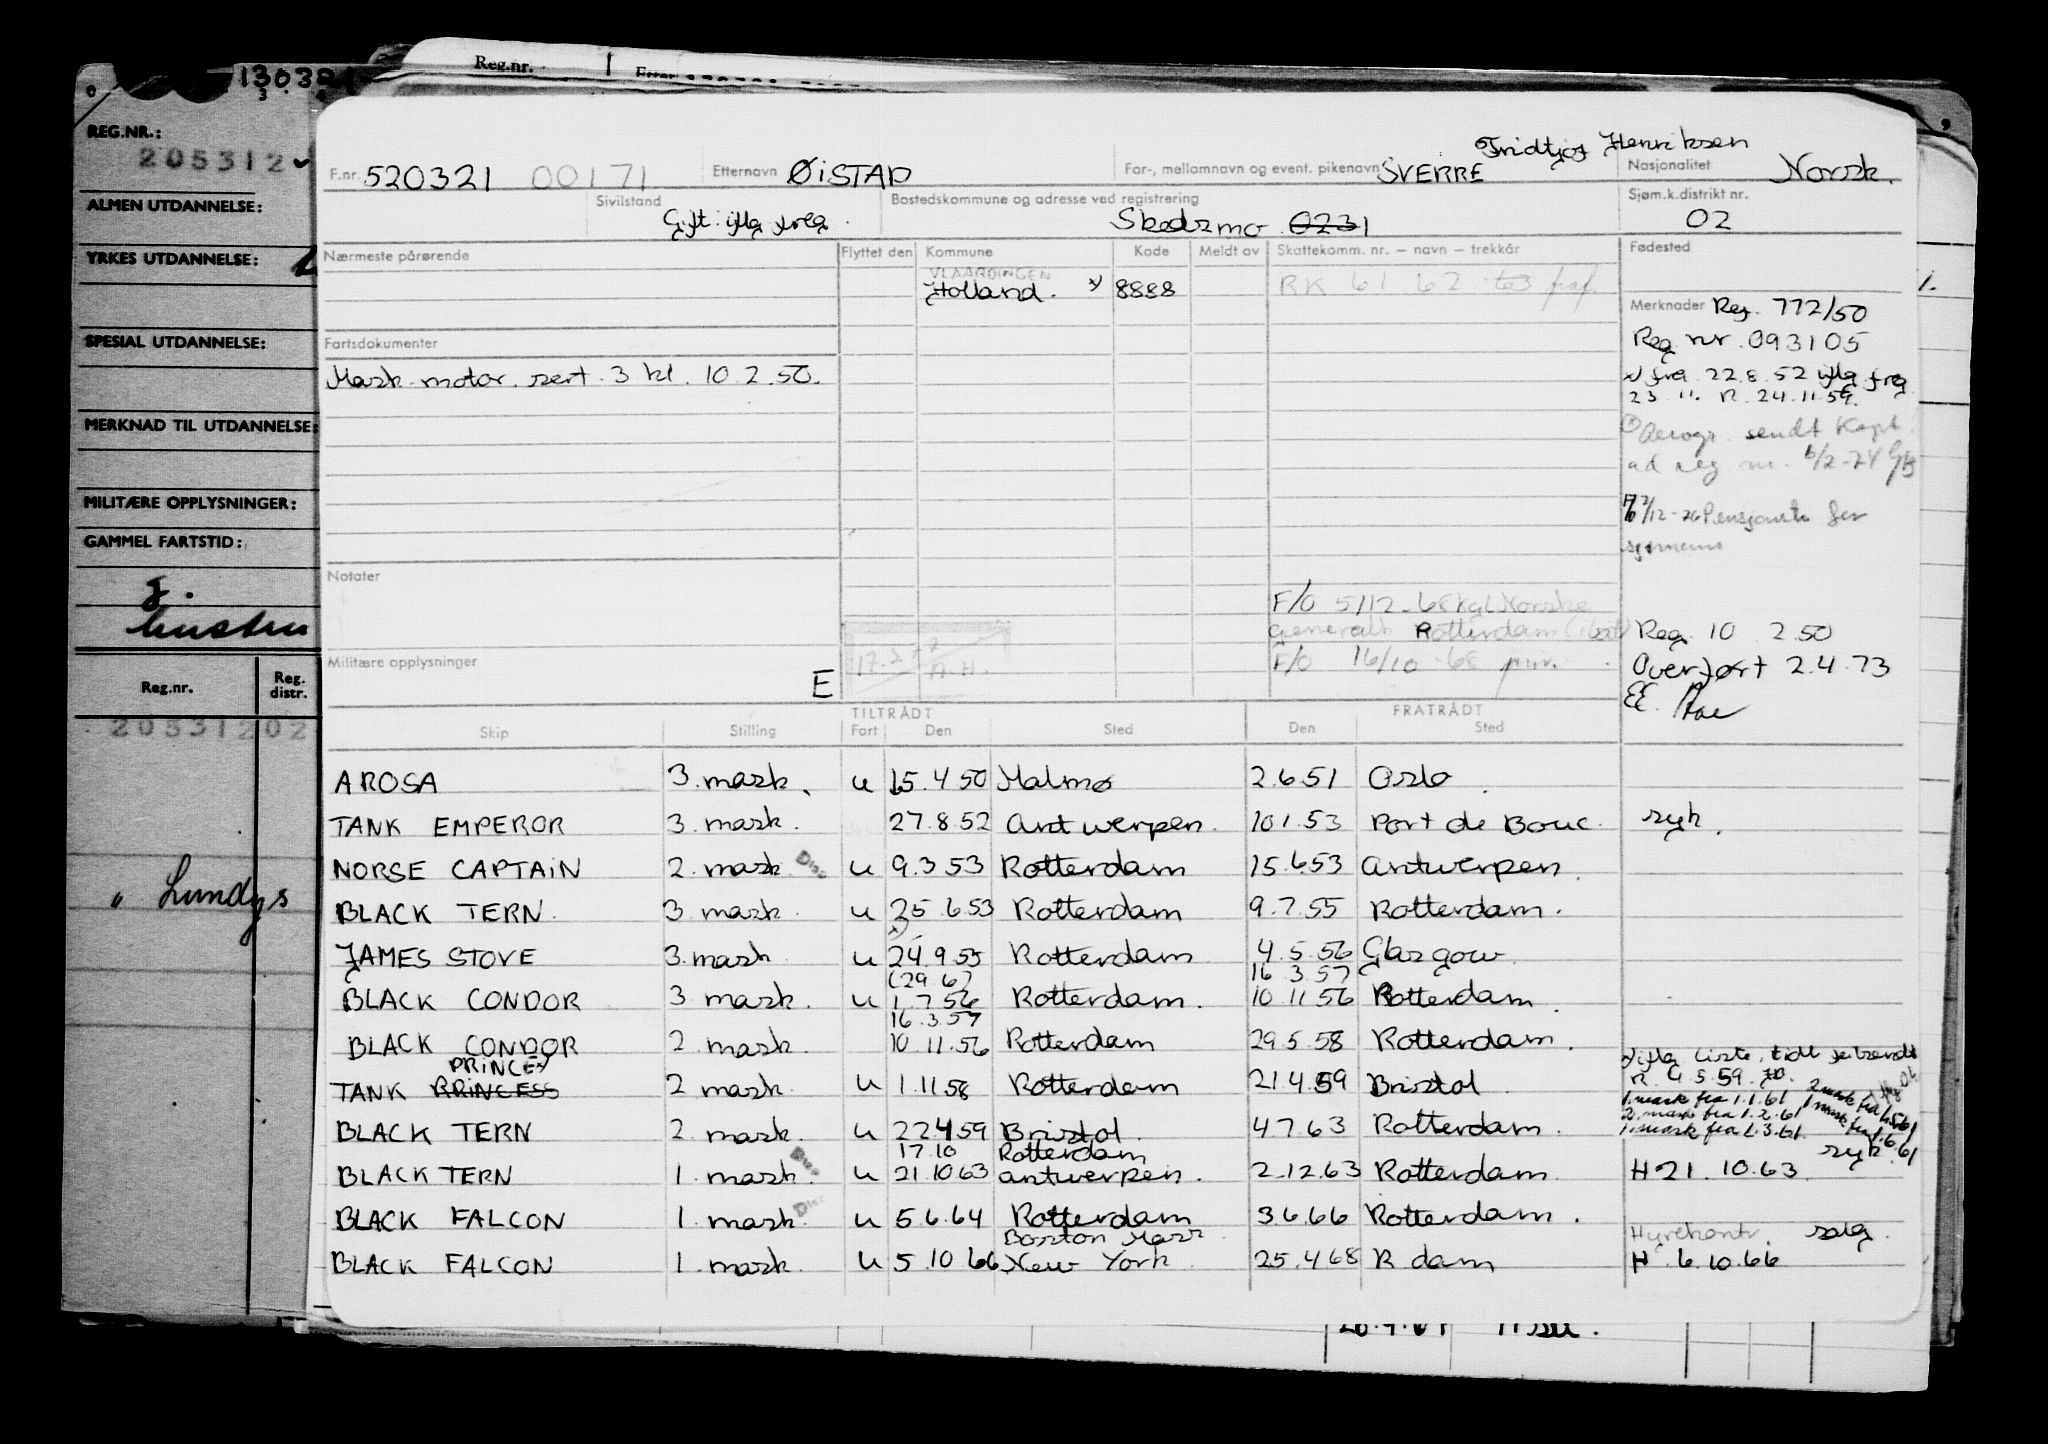 130321
REG.NR.:
205312
ALMEN UTDANNELSE:
YRKES UTDANNELSE:
SPESIAL UTDANNELSE:
MERKNAD TIL UTDANNELSE:
MILITÆRE OPPLYSNINGER:
GAMMEL FARTSTID:
Reg.nr. Reg. distr.
20531202
" Lundgs
Reg.nr.
Fridtjof Henriksen
F.nr. 520321 00171 Etternavn ØISTAD For-, mellomnavn og event. pikenavn SVERRE Nasjonalitet Norsk.
Sivilstand Gift iflg freg. Bostedskommune og adresse ved registrering Skedsmo 0231 Sjøm.k.distrikt nr. 02
Nærmeste pårørende Flyttet den Kommune Kode Meldt av Skattekomm. nr. – navn – trekkår Fødested
VLAARDINGEN
Holland. x) 8888 RK 61 62 63
Merknader Reg. 772/50
Reg nr. 093105
x) frg. 22.8.52 iflg frg
23.11. R. 24.11.59.
Aerogr. sendt Kapt.
ad reg nr. 6/2-74
7/12-76 Pensjonist for
sjømenn
Fartsdokumenter
Mask. motor. sert. 3 kl. 10.2.50.
Notater
F/O 5/12-68 Kgl Norske
generalk Rotterdam
F/O 16/10-68 priv.
Reg. 10 2.50
Overført 2.4.73
EE.
Militære opplysninger E
17.2.77
A.H.
TILTRÅDT FRATRÅDT
Skip Stilling Fart Den Sted Den Sted
AROSA 3. mask. u 15.4.50 Malmø 2.6.51 Oslo.
TANK EMPEROR 3. mask. 27.8.52 Antwerpen. 10.1.53 Port de Bouc. syk.
NORSE CAPTAIN 2. mask Disp u 9.3.53 Rotterdam 15.6.53 Antwerpen.
BLACK TERN. 3. mask. u 25.6.53 Rotterdam 9.7.55 Rotterdam.
x)
JAMES STOVE 3. mask. u 24.9.55 Rotterdam 4.5.56 Glasgow.
(29.6) 16.3.57
BLACK CONDOR 3. mask. u 1.7.56 Rotterdam. 10.11.56 Rotterdam.
16.3.57
BLACK CONDOR 2. mask. 10.11.56 Rotterdam 29.5.58 Rotterdam.
PRINCE x) iflg liste, tidl
TANK PRINCESS 2 mask. u 1.11.58 Rotterdam 21.4.59 Bristol R. 4.5.59.
1. mask fra 1.1.61 2 mask fra 1.5.61
2. mask fra 1.2.61 1 mask fra 1.6.61
BLACK TERN 2. mask. u 22.4.59 Bristol. 4.7.63 Rotterdam. 1. mask fra 1.3.61.
17.10 Rotterdam syk
BLACK TERN 1. mask. u 21.10.63 Antwerpen. 2.12.63 Rotterdam. H 21.10.63
BLACK FALCON 1. mask. Disp u 5.6.64 Rotterdam 3.6.66 Rotterdam.
Boston Mass. Hyrekontr. salg.
BLACK FALCON 1. mask. u 5.10.66 New York 25.4.68 R dam H. 6.10.66